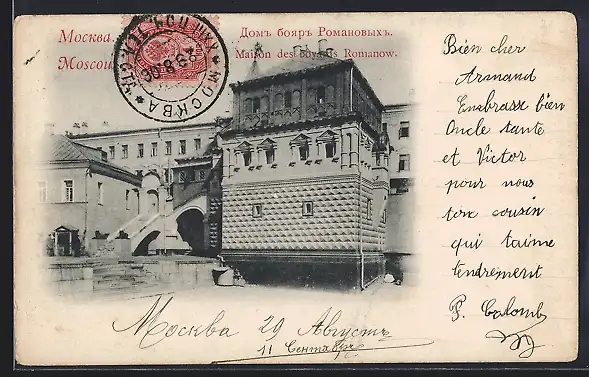 Москва.
Moscou.
Домъ бояръ Романовыхъ.
Maison des boyards Romanow.
МОСКВА
Bien cher
Armand
Embrasse bien
Oncle tante
et Victor
pour nous
ton cousin
qui t'aime
tendrement
P. Colomb
Москва 29 Августъ
11 Сентябрь